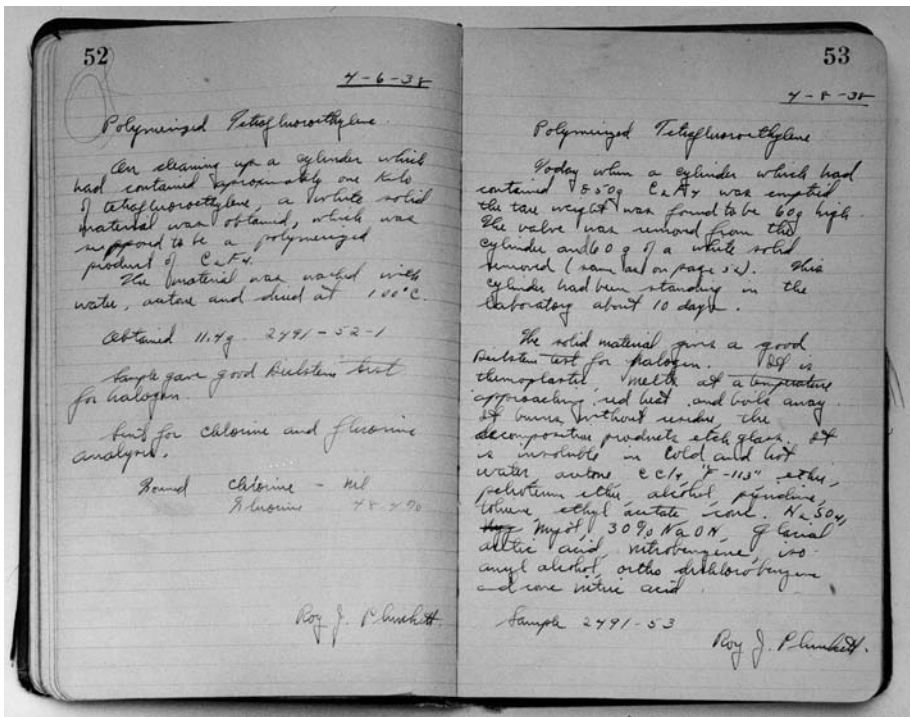 52
4-6-38
Polymerized Tetrafluoroethylene
On cleaning up a cylinder which
had contained aproximately one kilo
of tetrafluoroethylene, a white solid
material was obtained, which was
supposed to be a polymerized
product of C2F4.
The material was washed with
water, acetone and dried at 100°C.
Obtained 11.4g. 2491-52-1
Sample gave good Beilstein test
for halogen.
Sent for chlorine and fluorine
analysis.
Found chlorine - nil
Fluorine 48.4%
Roy J. Plunkett.
53
4-8-38
Polymerized Tetrafluoroethylene
Today when a cylinder which had
contained 850g C2F4 was emptied
the tare weight was found to be 60g high.
The valve was removed from the
cylinder and 60g of a white solid
removed (same as on page 52). This
cylinder had been standing in the
laboratory about 10 days.
The solid material gives a good
Beilstein test for halogen. It is
thermoplastic, melts at a temperature
approaching red heat and boils away.
It burns without residue, the
decomposition products etch glass. It
is insoluble in cold and hot
water, acetone CCl4, "F-113", ether,
petroleum ether, alcohol, pyridine,
toluene, ethyl acetate conc. H2SO4,
30% NaOH, glacial
acetic acid, nitrobenzene, iso-
amyl alcohol, ortho dichlorobenzene
and conc nitric acid.
Sample 2491-53
Roy J. Plunkett.